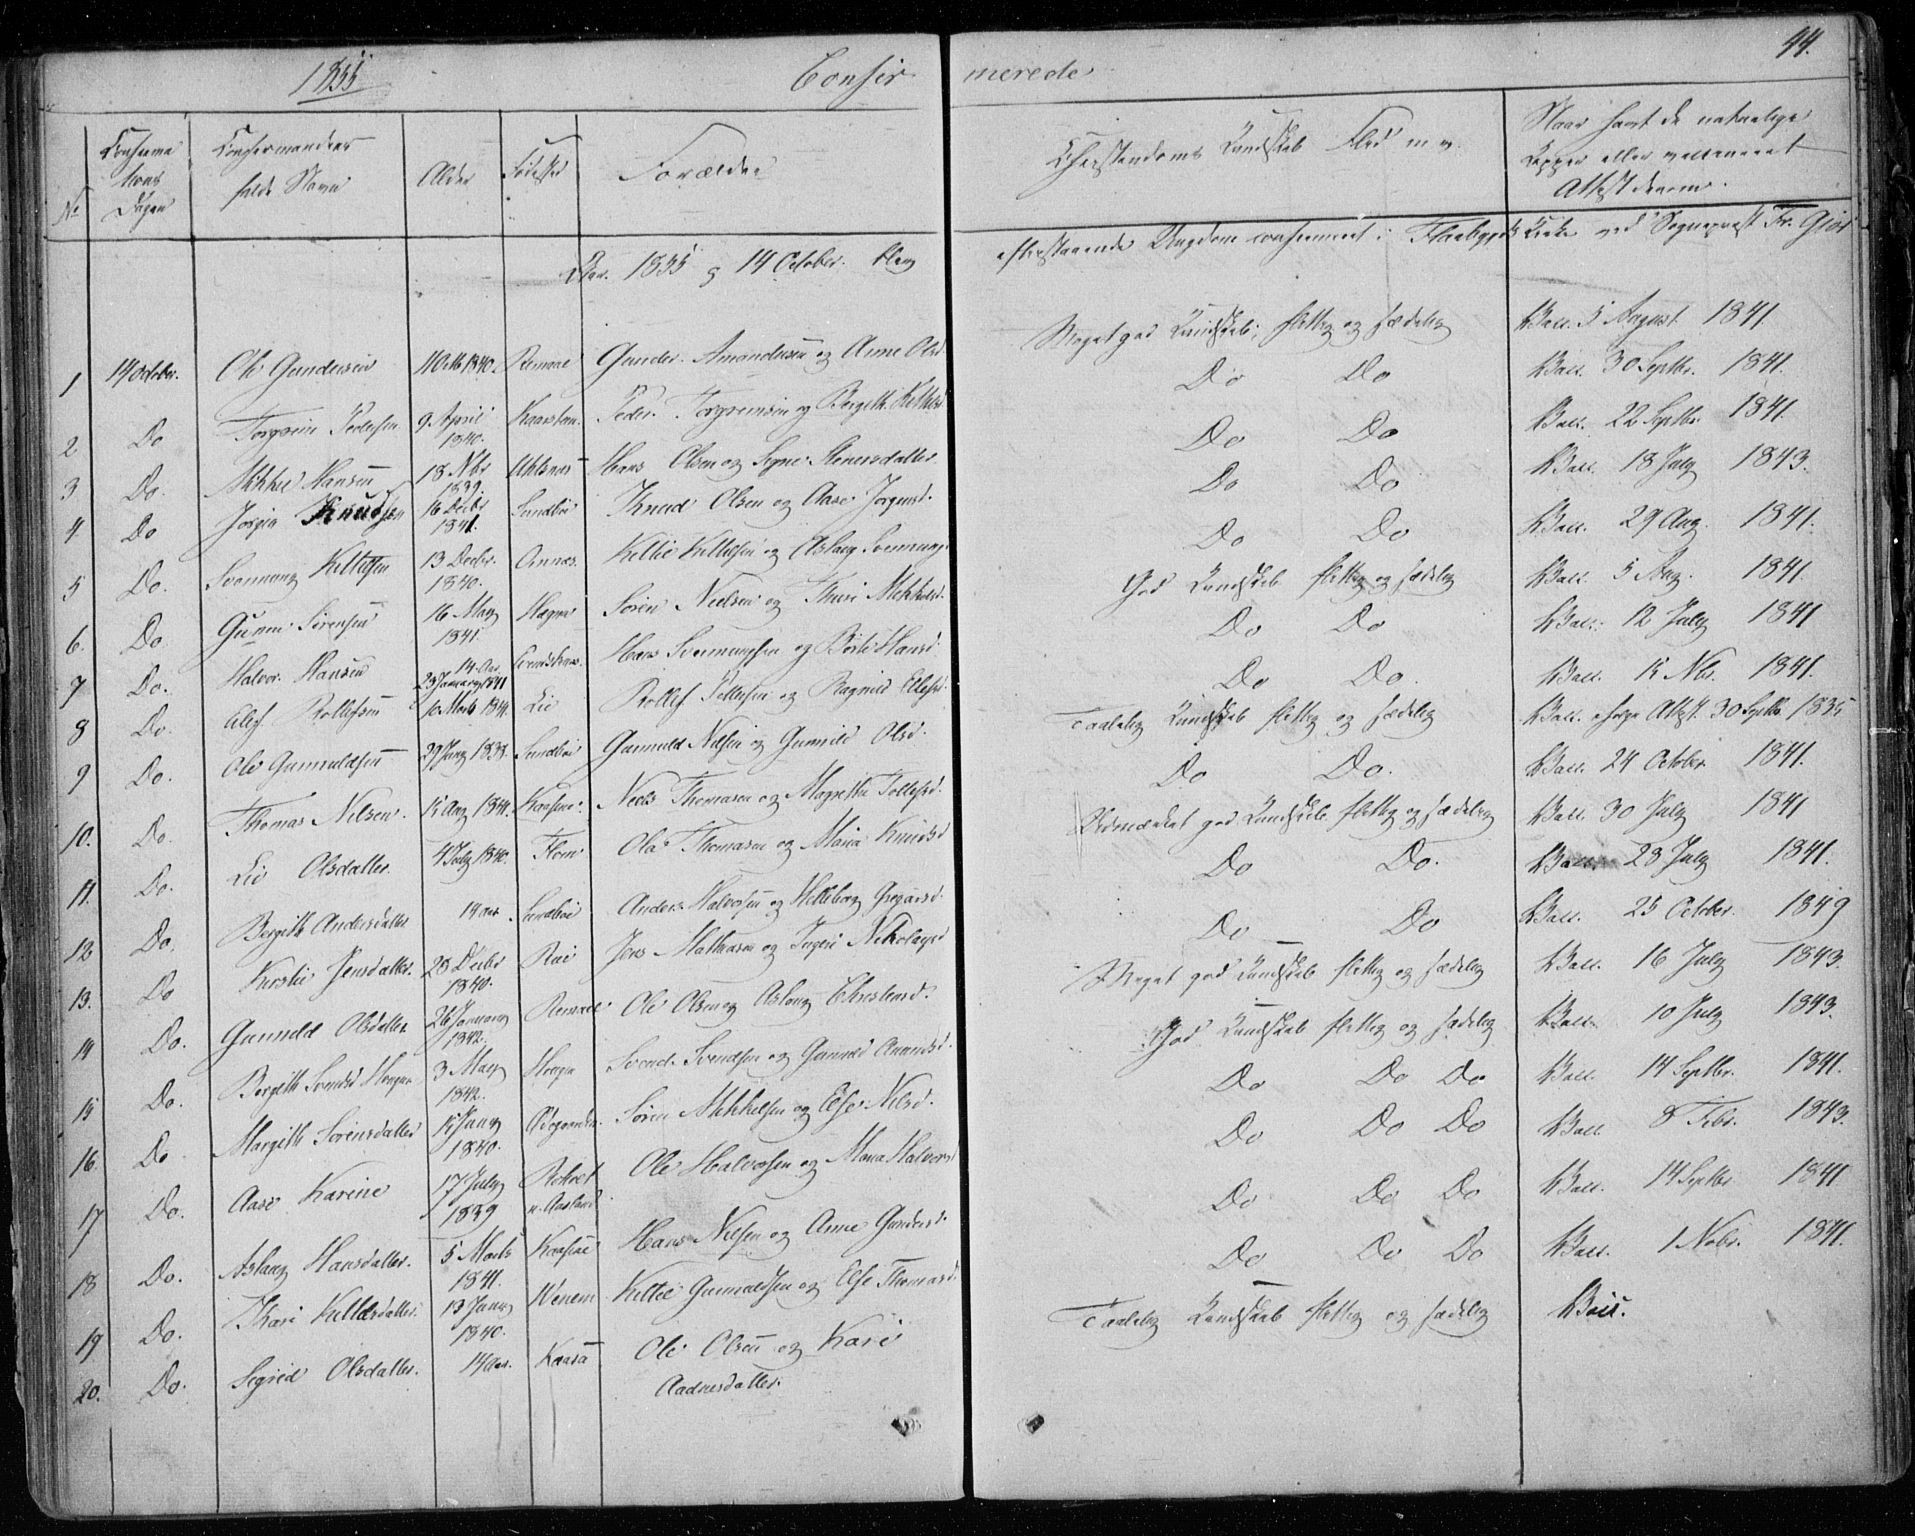 1855 Confir merede 44.
No Confirma Confirmandens Alder Fødested Forældre Christendoms Kundskab Flid m.v. Naar havt de naturlige
tions fulde Navn Kopper eller vaccineret
Dagen Attest derom.
Aar 1855 d 14 October blev efterstaaende Ungdom confirmeret i Flaabygds Kirke ved Sognepræst Fr.
1 14 October. Ole Gundersen 1840. Gunder Amundsen og Anne Olsd. Meget god Kundskab, flittig og sædelig Vacc. 5 August 1841
2 Do Torgrim Pedersen 9 April 1840. Peder Torgrimsen og Bergith Kittilsd. Do Do Vacc. 30 Septbr. 1841.
3 Do. Mikkel Hansen 18 Nbr 1839. Uhlsnæs Hans Olsen og Signe Stenersdatter Do Do Vacc. 22 Septbr. 1841.
4 Do Jørgen Knudsen 16 Decbr 1841. Sundbøe Knud Olsen og Aase Jørgensd. Do Do Vacc. 18 July 1843.
5 Do. Svennung Kittilsen 13 Decbr. 1840. Kittil Kittilsen og Aslaug Svennungsd. Do Do Vacc. 29 Aug. 1841.
6. Do Gunne Sørensen 16 May 1841. Hegna Søren Nielsen og Thuri Mikkelsd. God Kundskab flittig og sædelig Vacc. 5 Aug. 1841.
7 Do. Halvor Hansen 14 Aar 23 January 1841 Hans Svennungsen og Hansd. Do Do Vacc. 12 July 1841
8 Do. Rollefsen 10 Marts 1841. Lie Rollef Tollefsen og Ragnild Ellefsd. Do Do. Vacc. 15 Nbr. 1841.
9 Do. Ole Gunnuldsen 29 Jany 1838. Sundbøe Gunnuld Nilsen og Gunnild Olsd. Taalelig Kundskab flittig og sædelig Vacc. ifølge Attest 30 Septbr 1835
10. Do. Thomas Nilsen. 15 Aug 1841. Kaasene. Niels Thomasen og Margrethe Tollefsd. Do Do. Vacc. 24 October 1841.
11. Do. Liv Olsdatter. 4 July 1840. Flom Ola Thomasen og Maria Knudsd Udmærket god Kundskab flittig og sædelig Vacc. 30 July 1841
12 Do. Bergith Andersdatter 14 Aar Sundbøe Anders Halvorsen og Helleborg Gregarsd. Do Do. Vacc. 28 July 1841.
13. Do Kirstie Jensdatter. 28 Decbr 1840. Rui Jens Mathiasen og Ingeri Nikolaysd Do Do Vacc. 25 October. 1849
14 Do. Gunnild Olsdatter 26 January 1842. Remme Ole Olsen og Aslaug Christensd. Meget god Kundskab flittig og sædelig Vacc. 16 July 1843.
15 Do. Bergith Svendsd Haugen 3 May 1842. Haugen Svend Svendsen og Gunnild Amundsd. God Kundskab flittig og sædelig Vacc. 10 July 1843.
16. Do. Margith Sørensdatter 15 Jany 1840. Søren Mikkelsen og Else Nilsd. Do Do Do Vacc. 14 Septbr. 1841.
17 Do. Aase Karine 17 July 1839 u. Aasland Ole Halvorsen og Maria Halvorsd Do Do Do Vacc. 8 Febr. 1843.
18 Do. Aslaug Hansdatter. 5 Marts 1841. Kaasene Hans Nilsen og Anne Gundersd. Do Do Do Vacc. 14 Septbr 1841
19 Do. Kari Kittilsdatter. 13 Jany 1840. Wenem Kittil Gunnuldsen og Else Thomasd. Do Do Do Vacc. 1 Nobr. 1841.
20. Do. Sigrid Olsdatter. 14 Aar. Kaasa Ole Olsen og Kari Taalelig Kundskab flittig og sædelig Vacc.
Aadnesdatter.